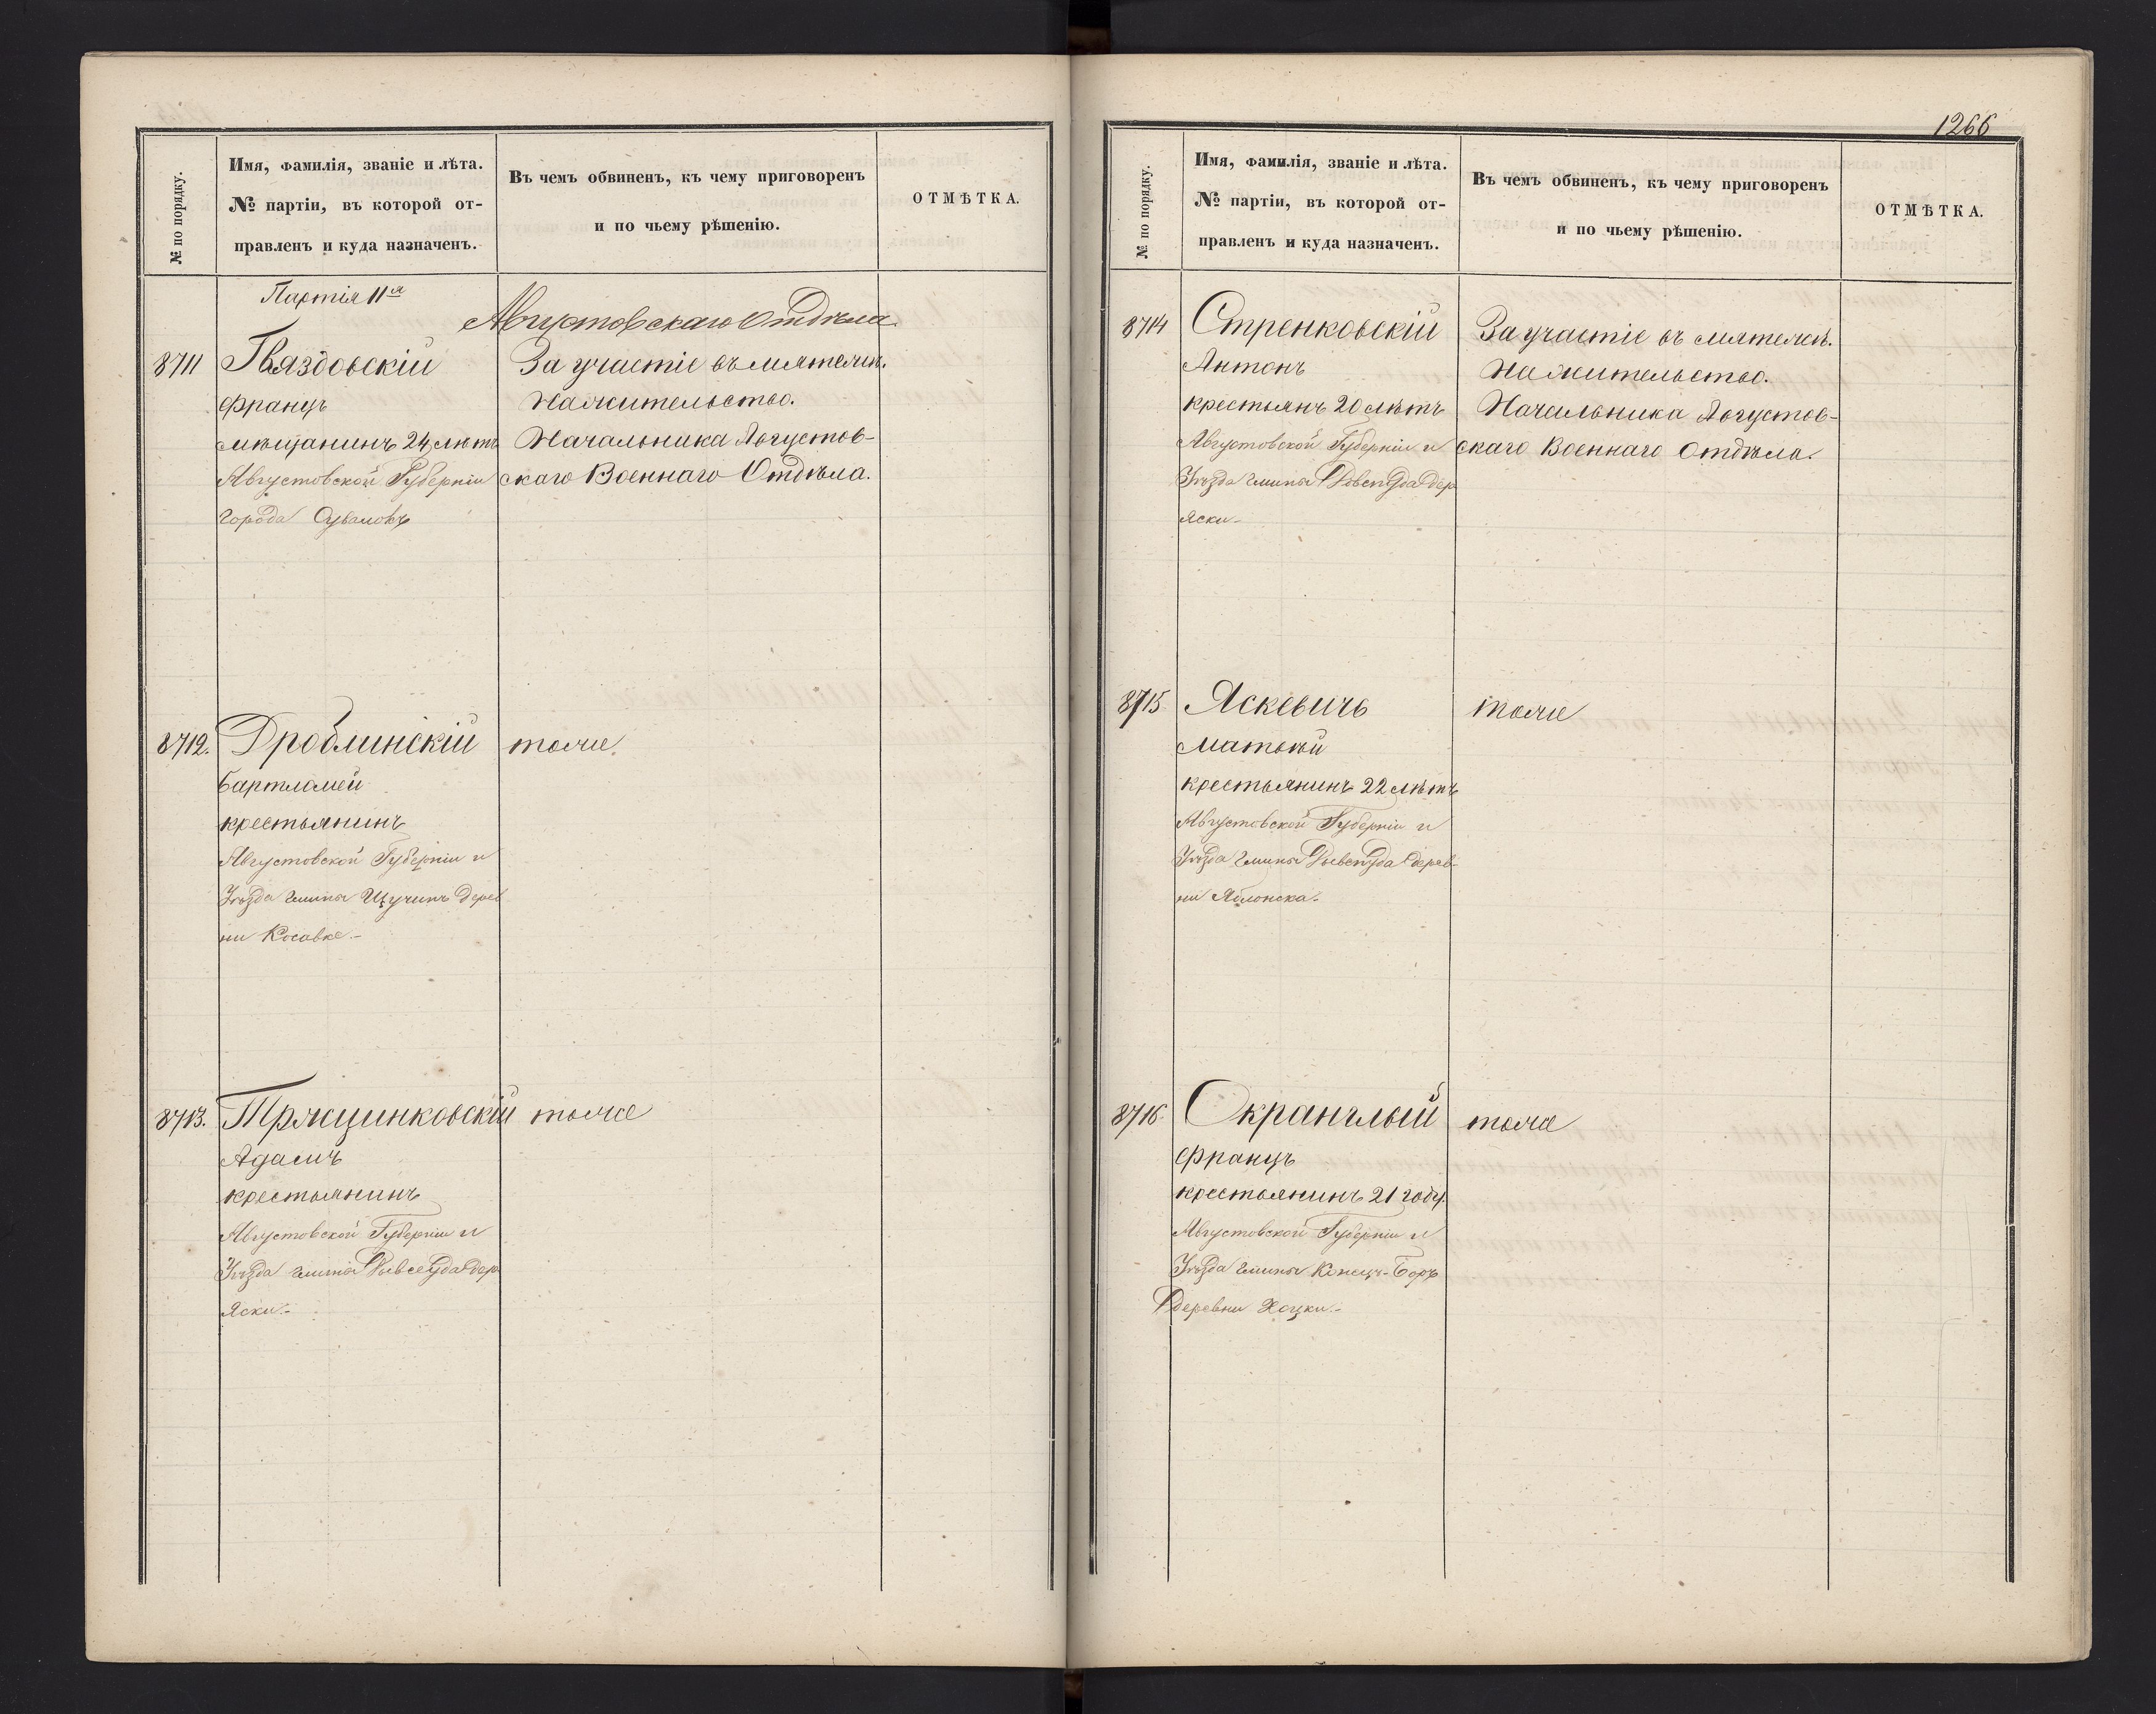 № по порядку.
Имя, фамилія, званіе и лѣта.
№ партіи, въ которой от-
правленъ и куда назначенъ.
Въ чемъ обвиненъ, къ чему приговоренъ
и по чьему рѣшенію.
ОТМѢТКА.
Партія 11я
Августовскаго Отдѣла
8711
Гвяздовскій
Францъ
мѣщанинъ 24 лѣтъ
Августовской Губерніи
города Сувалокъ
За участіе въ мятежѣ.
На жительство.
Начальника Августов-
скаго Военнаго Отдѣла.
8712.
Дроблинскій
Бартломей
крестьянинъ
Августовской Губерніи и
Уѣзда гмины Щучинъ дерев
ни Косавке.-
тоже.
8713.
Тржцинковскій
Адамъ
крестьянинъ
Августовской Губерніи и
Уѣзда гмины дер
Яски.-
тоже
1266
№ по порядку.
Имя, фамилія, званіе и лѣта.
№ партіи, въ которой от-
правленъ и куда назначенъ.
Въ чемъ обвиненъ, къ чему приговоренъ
и по чьему рѣшенію.
ОТМѢТКА.
8714
Стренковскій
Антонъ
крестьянъ 20 лѣтъ
Августовской Губерніи и
Уѣзда гмины дер
Яски-
За участіе въ мятежѣ.
На жительство.
Начальника Августов-
скаго Военнаго Отдѣла.
8715
Яскевичъ
Матвѣй
крестьянинъ 22 лѣтъ
Августовской Губерніи и
Уѣзда гмины дерев-
ни Яблонска.
тоже
8716
Окранглый
Францъ
крестьянинъ 21 году.
Августовской Губерніи и
Уѣзда гмины Конецъ-Боръ
деревни Хоцки.-
тоже